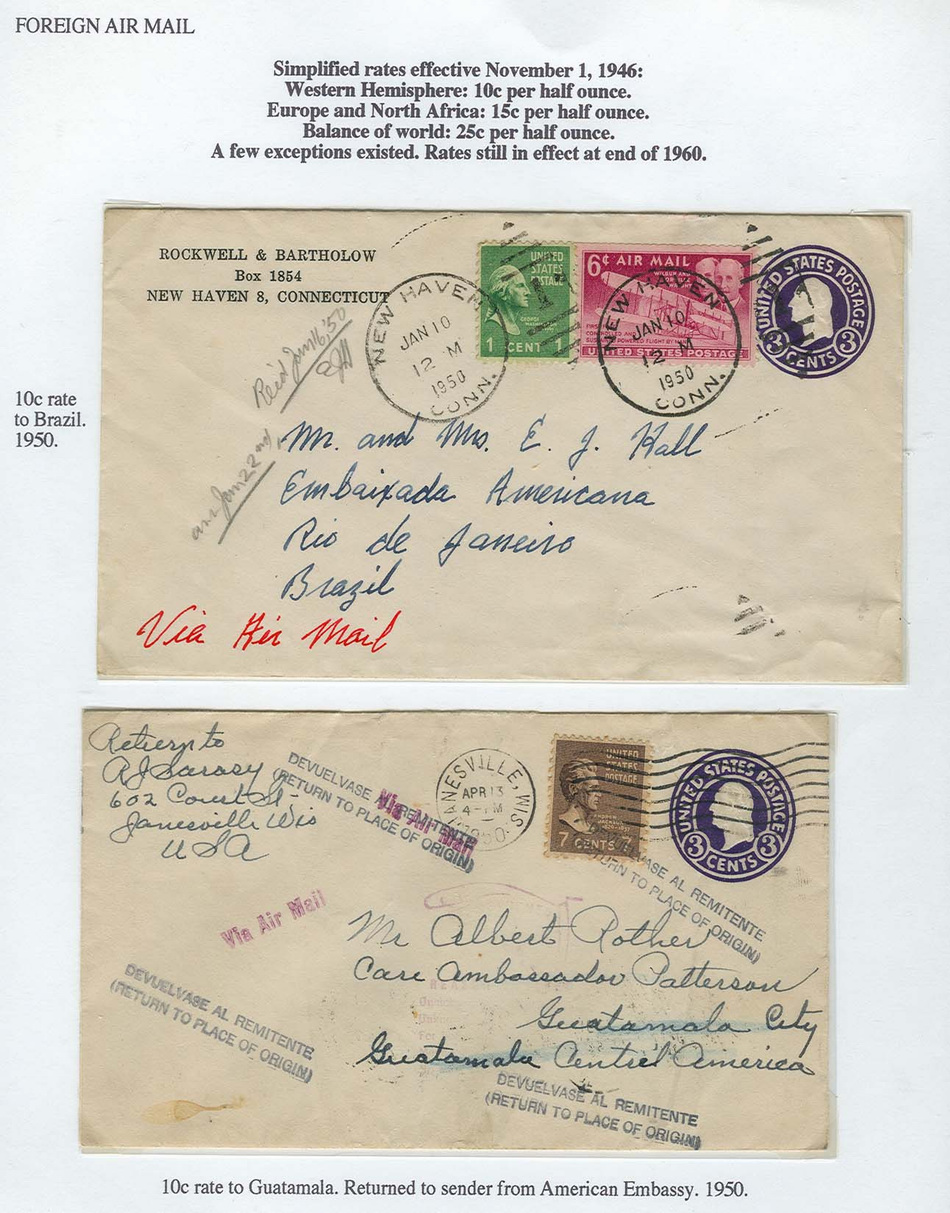 FOREIGN AIR MAIL
Simplified rates effective November 1, 1946:
Western Hemisphere: 10c per half ounce.
Europe and North Africa: 15c per half ounce.
Balance of world: 25c per half ounce.
A few exceptions existed. Rates still in effect at end of 1960.
ROCKWELL & BARTHOLOW
Box 1854
NEW HAVEN 8, CONNECTICUT
NEW HAVEN
JAN 10
12 M
1950
CONN.
UNITED
STATES
POSTAGE
1 CENT
6¢ AIR MAIL
UNITED STATES POSTAGE
NEW HAVEN
JAN 10
12 M
1950
CONN.
UNITED STATES POSTAGE
3 CENTS 3
Rec'd Jan 16, '50
ans Jan 22nd
10c rate
to Brazil.
1950.
Mr. and Mrs. E. J. Hall
Embaixada Americana
Rio de Janeiro
Brazil
Via Air Mail
Return to
602 Court St.
Janesville Wis
USA
DEVUELVASE AL REMITENTE
(RETURN TO PLACE OF ORIGIN)
Via Air Mail
JANESVILLE, WIS.
APR 13
4 - PM
1950
UNITED
STATES
POSTAGE
7 CENTS 7
UNITED STATES POSTAGE
3 CENTS 3
DEVUELVASE AL REMITENTE
(RETURN TO PLACE OF ORIGIN)
Via Air Mail
Mr Albert Rother
Care Ambassador Patterson
Guatamala City
Guatamala Central America
DEVUELVASE AL REMITENTE
(RETURN TO PLACE OF ORIGIN)
DEVUELVASE AL REMITENTE
(RETURN TO PLACE OF ORIGIN)
10c rate to Guatamala. Returned to sender from American Embassy. 1950.